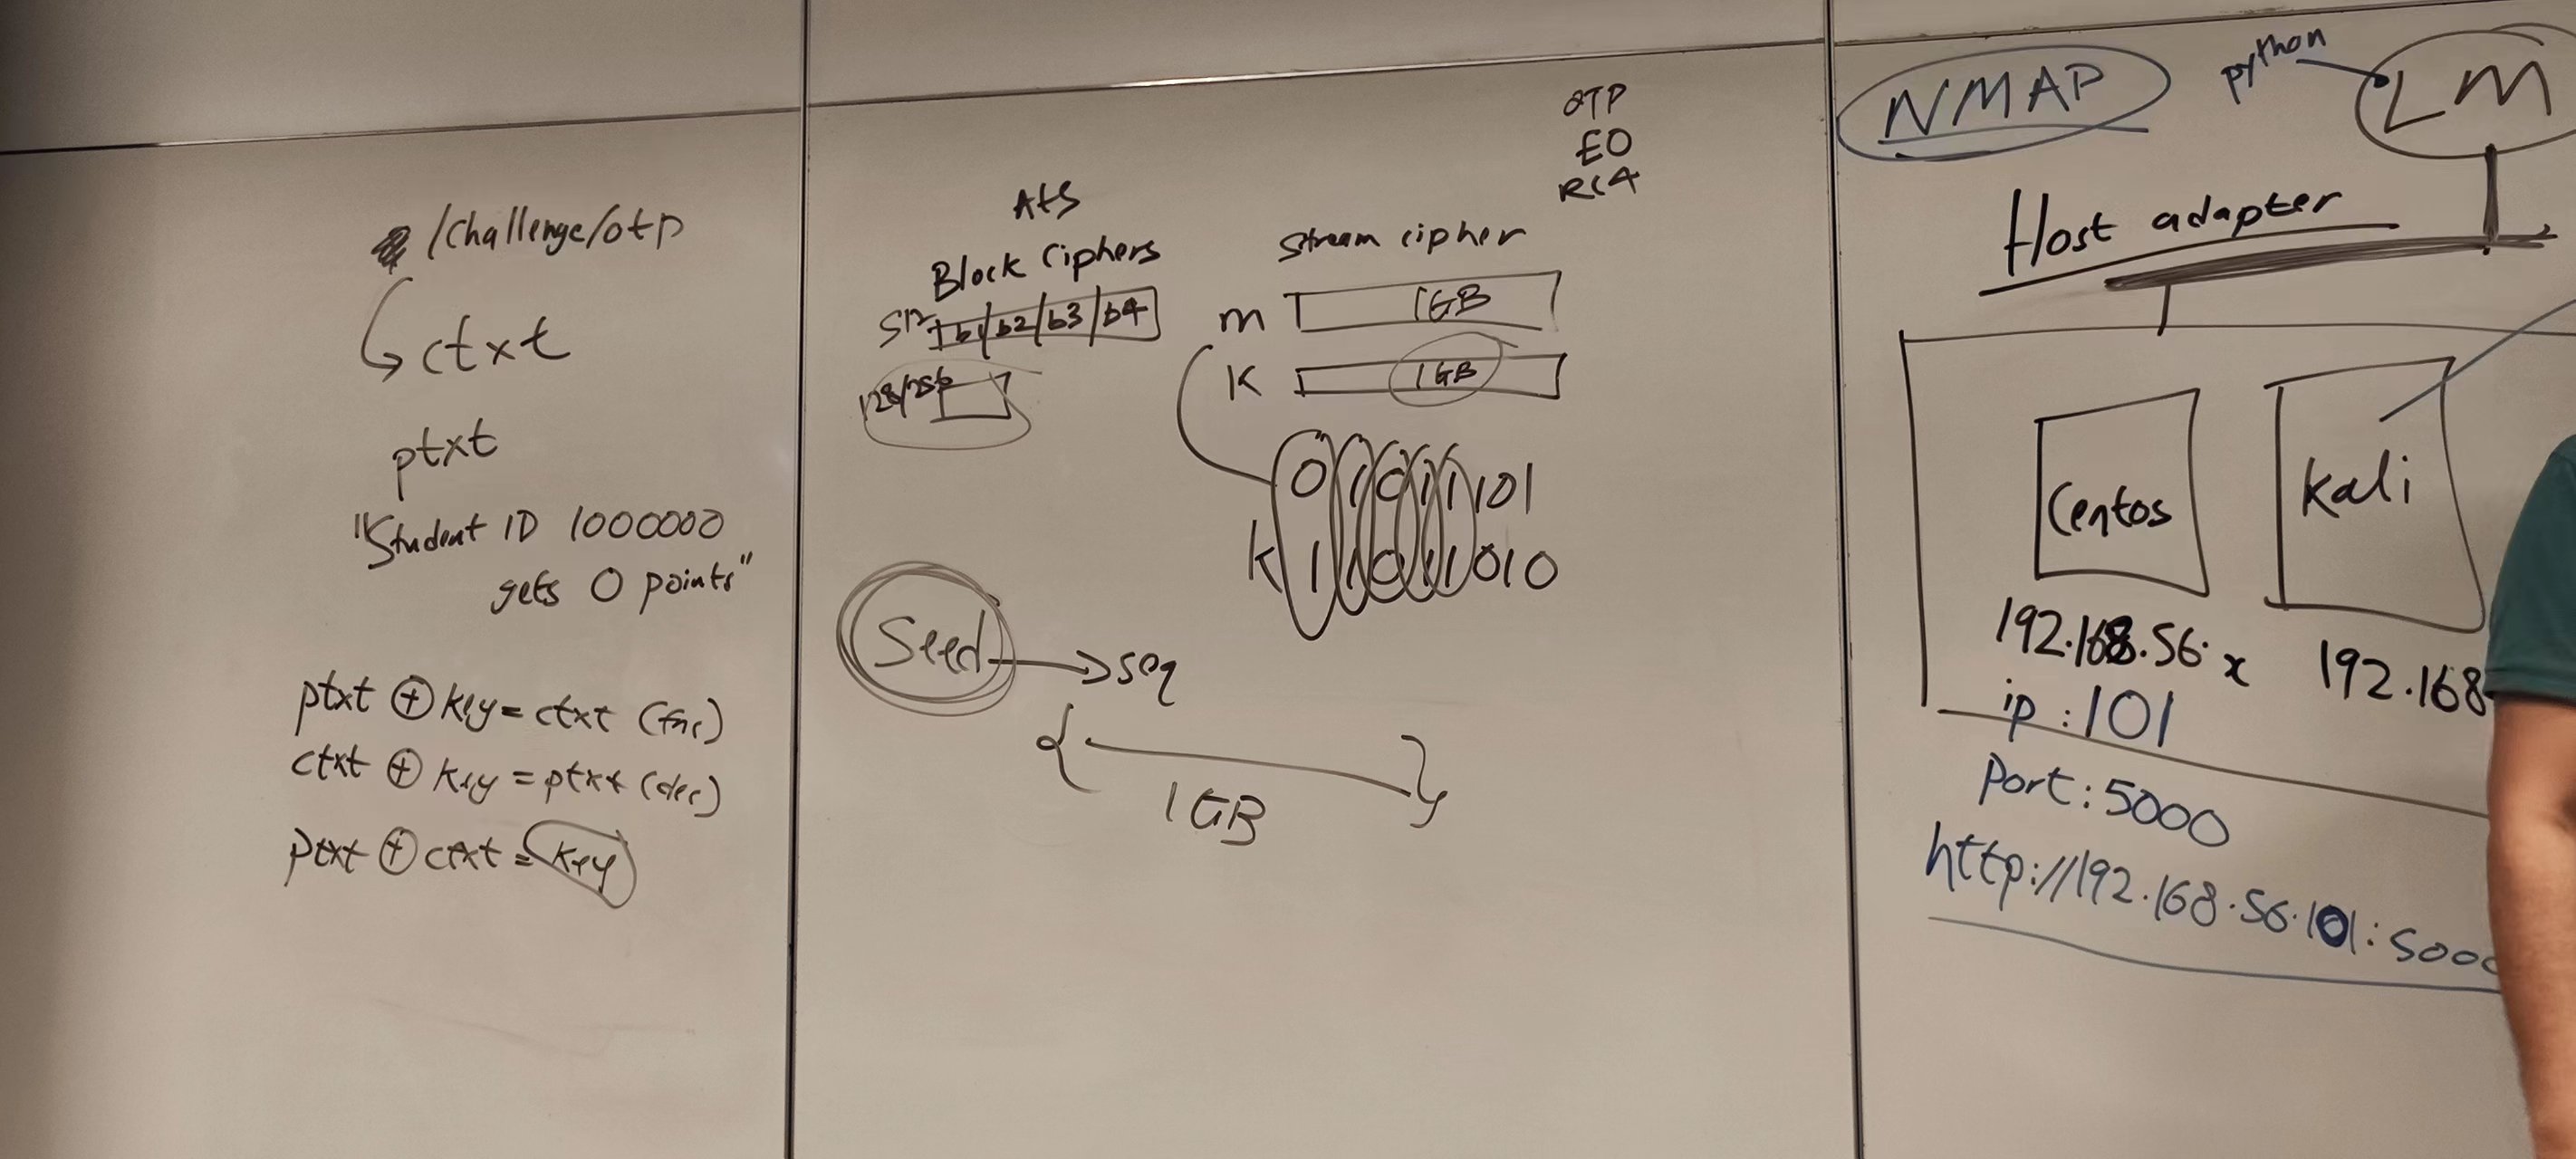 /challenge/otp
ctxt
ptxt
"Student ID 1000000
gets 0 points"
ptxt ⊕ key = ctxt (enc)
ctxt ⊕ key = ptxt (dec)
ptxt ⊕ ctxt = key
AES
Block Ciphers
512 b1 b2 b3 b4
128/256
Seed → seq
{ }
1GB
OTP
E0
RC4
Stream cipher
m 1GB
K 1GB
01011101
k 11011010
NMAP
python
LM
Host adapter
Centos
Kali
192.168.56.x
192.168
ip:101
Port:5000
http://192.168.56.101:500